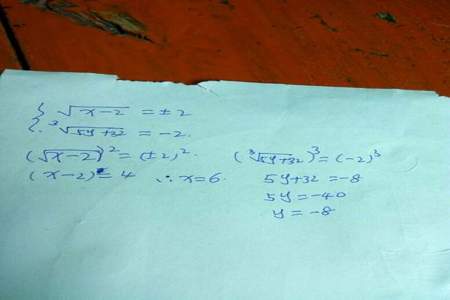 { √x-2 = ±2
. ³√5y+32 = -2.
(√x-2)² = (±2)².
(x-2) = 4 ∴ x=6.
(³√5y+32)³ = (-2)³
5y+32 = -8
5y = -40
y = -8